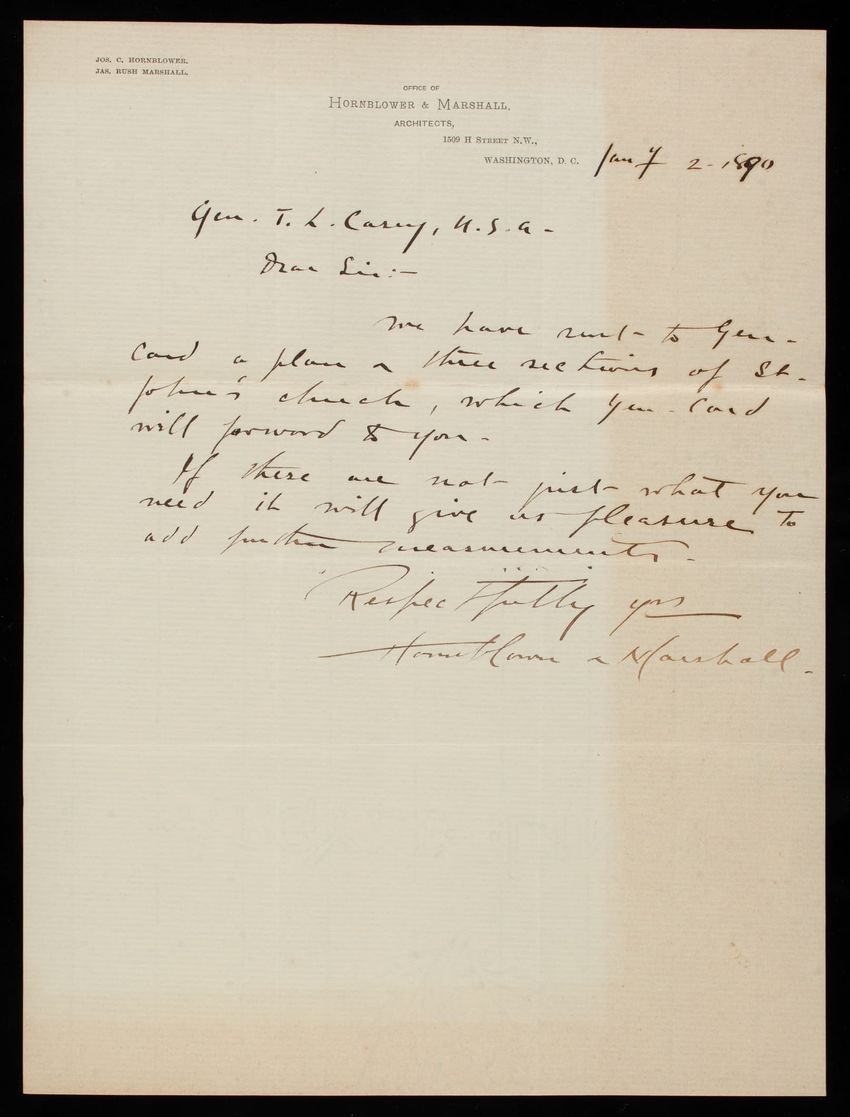 JOS. C. HORNBLOWER.
JAS. RUSH MARSHALL.
OFFICE OF
HORNBLOWER & MARSHALL,
ARCHITECTS,
1509 H STREET N.W.,
WASHINGTON, D. C. Jany 2 - 1890
Gen. T. L. Casey, U.S.A -
Dear Sir:-
We have sent to Gen -
Card a plan & three sections of St -
John's church, which Gen. Card
will forward to you -
If these are not just what you
need it will give us pleasure to
add further measurements -
Respectfully yrs
Hornblower & Marshall.